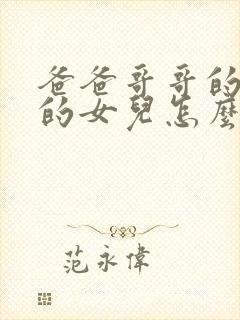 爸爸哥哥的
的女兒怎麼
范永偉